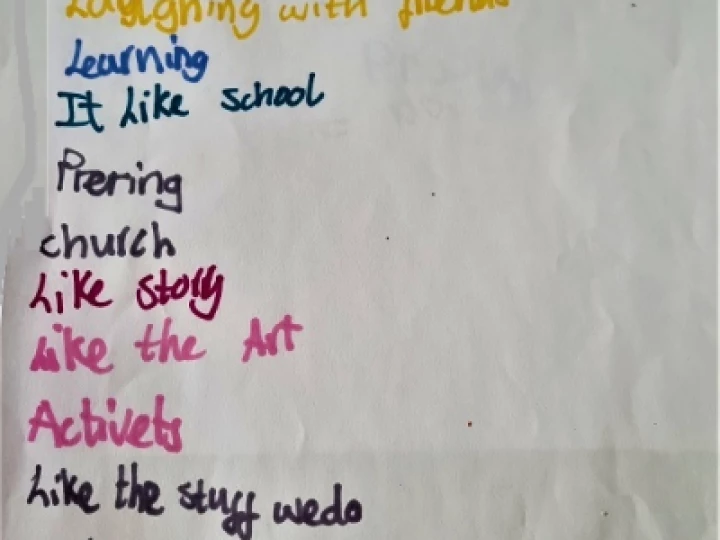 Laughing with friends
Learning
It Like school
Prering
church
Like story
Like the Art
Activets
Like the stuff wedo